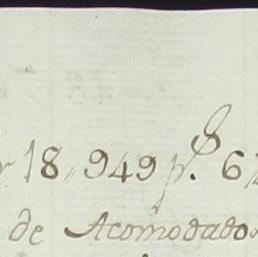 18,,949 p.s 6
de Acomodados